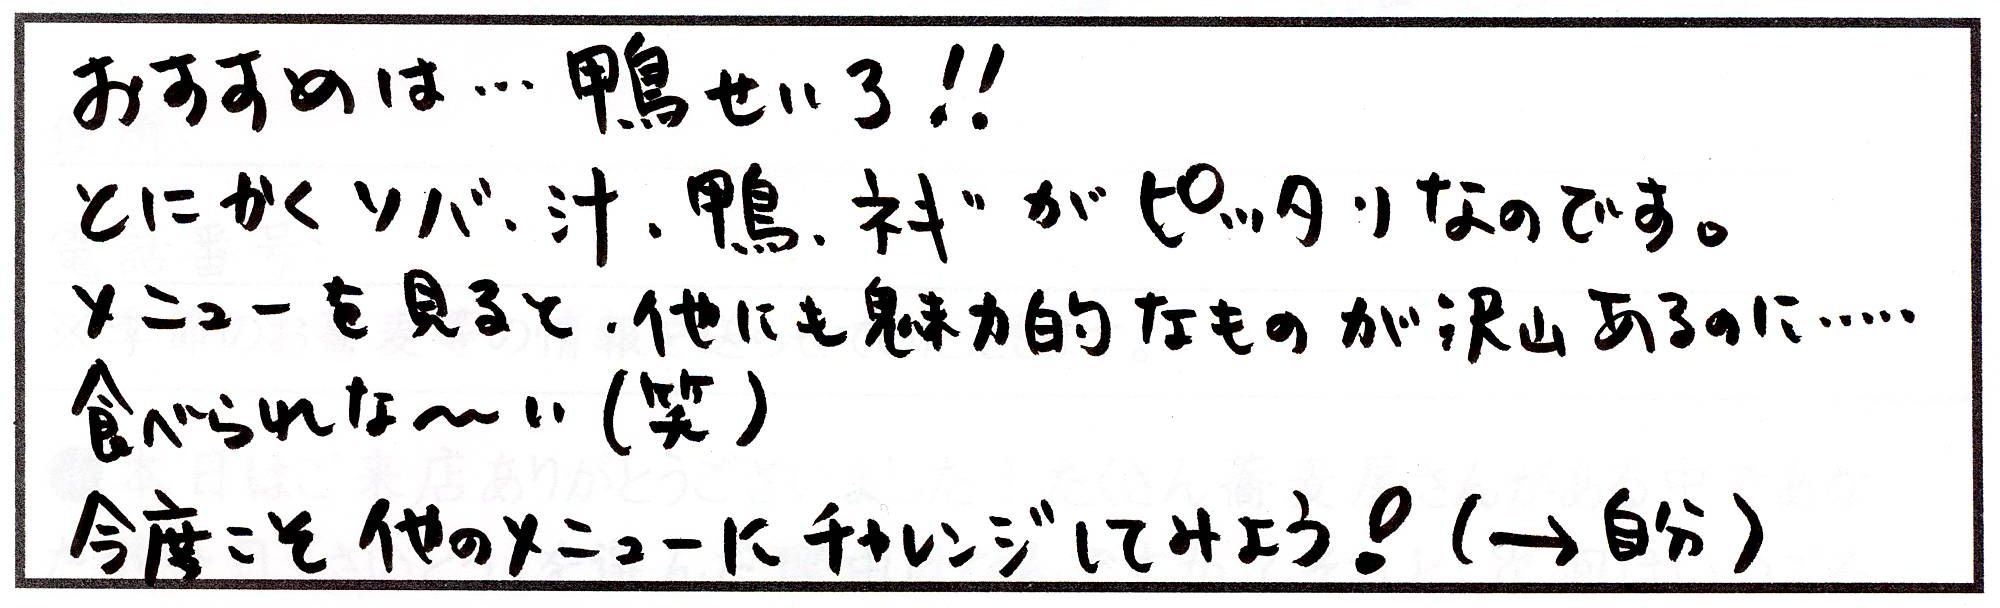 おすすめは…鴨せいろ!!
とにかくソバ、汁、鴨、ネギがピッタリなのです。
メニューを見ると、他にも魅力的なものが沢山あるのに……
食べられな〜い(笑)
今度こそ他のメニューにチャレンジしてみよう!(→自分)